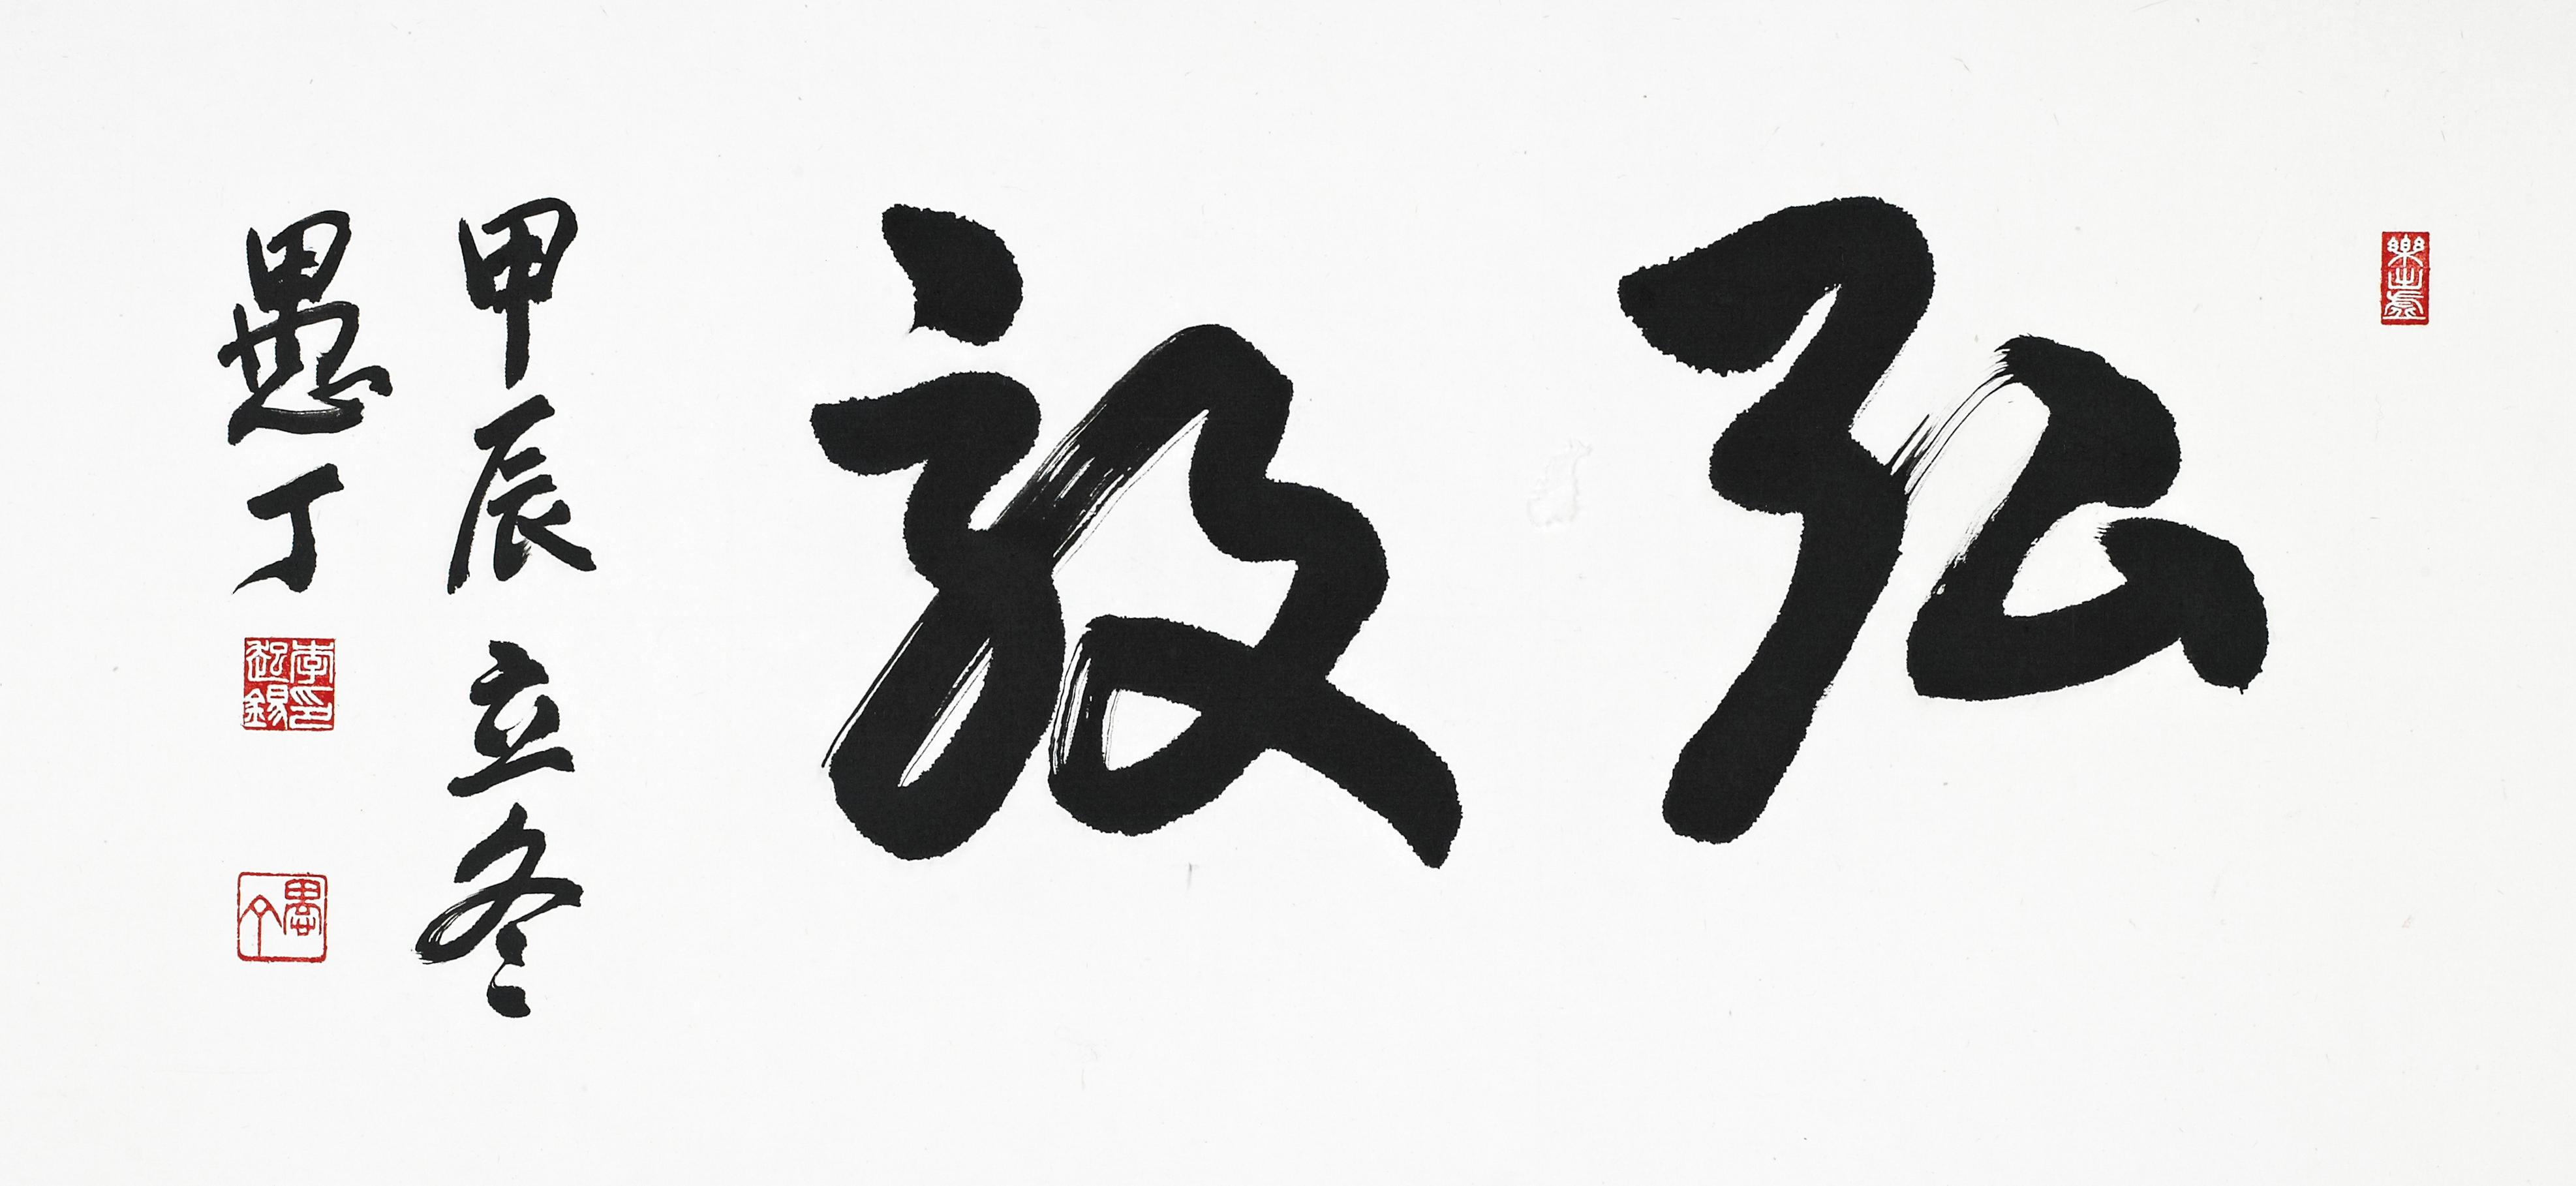 弘毅
甲辰立冬
愚丁
愚丁